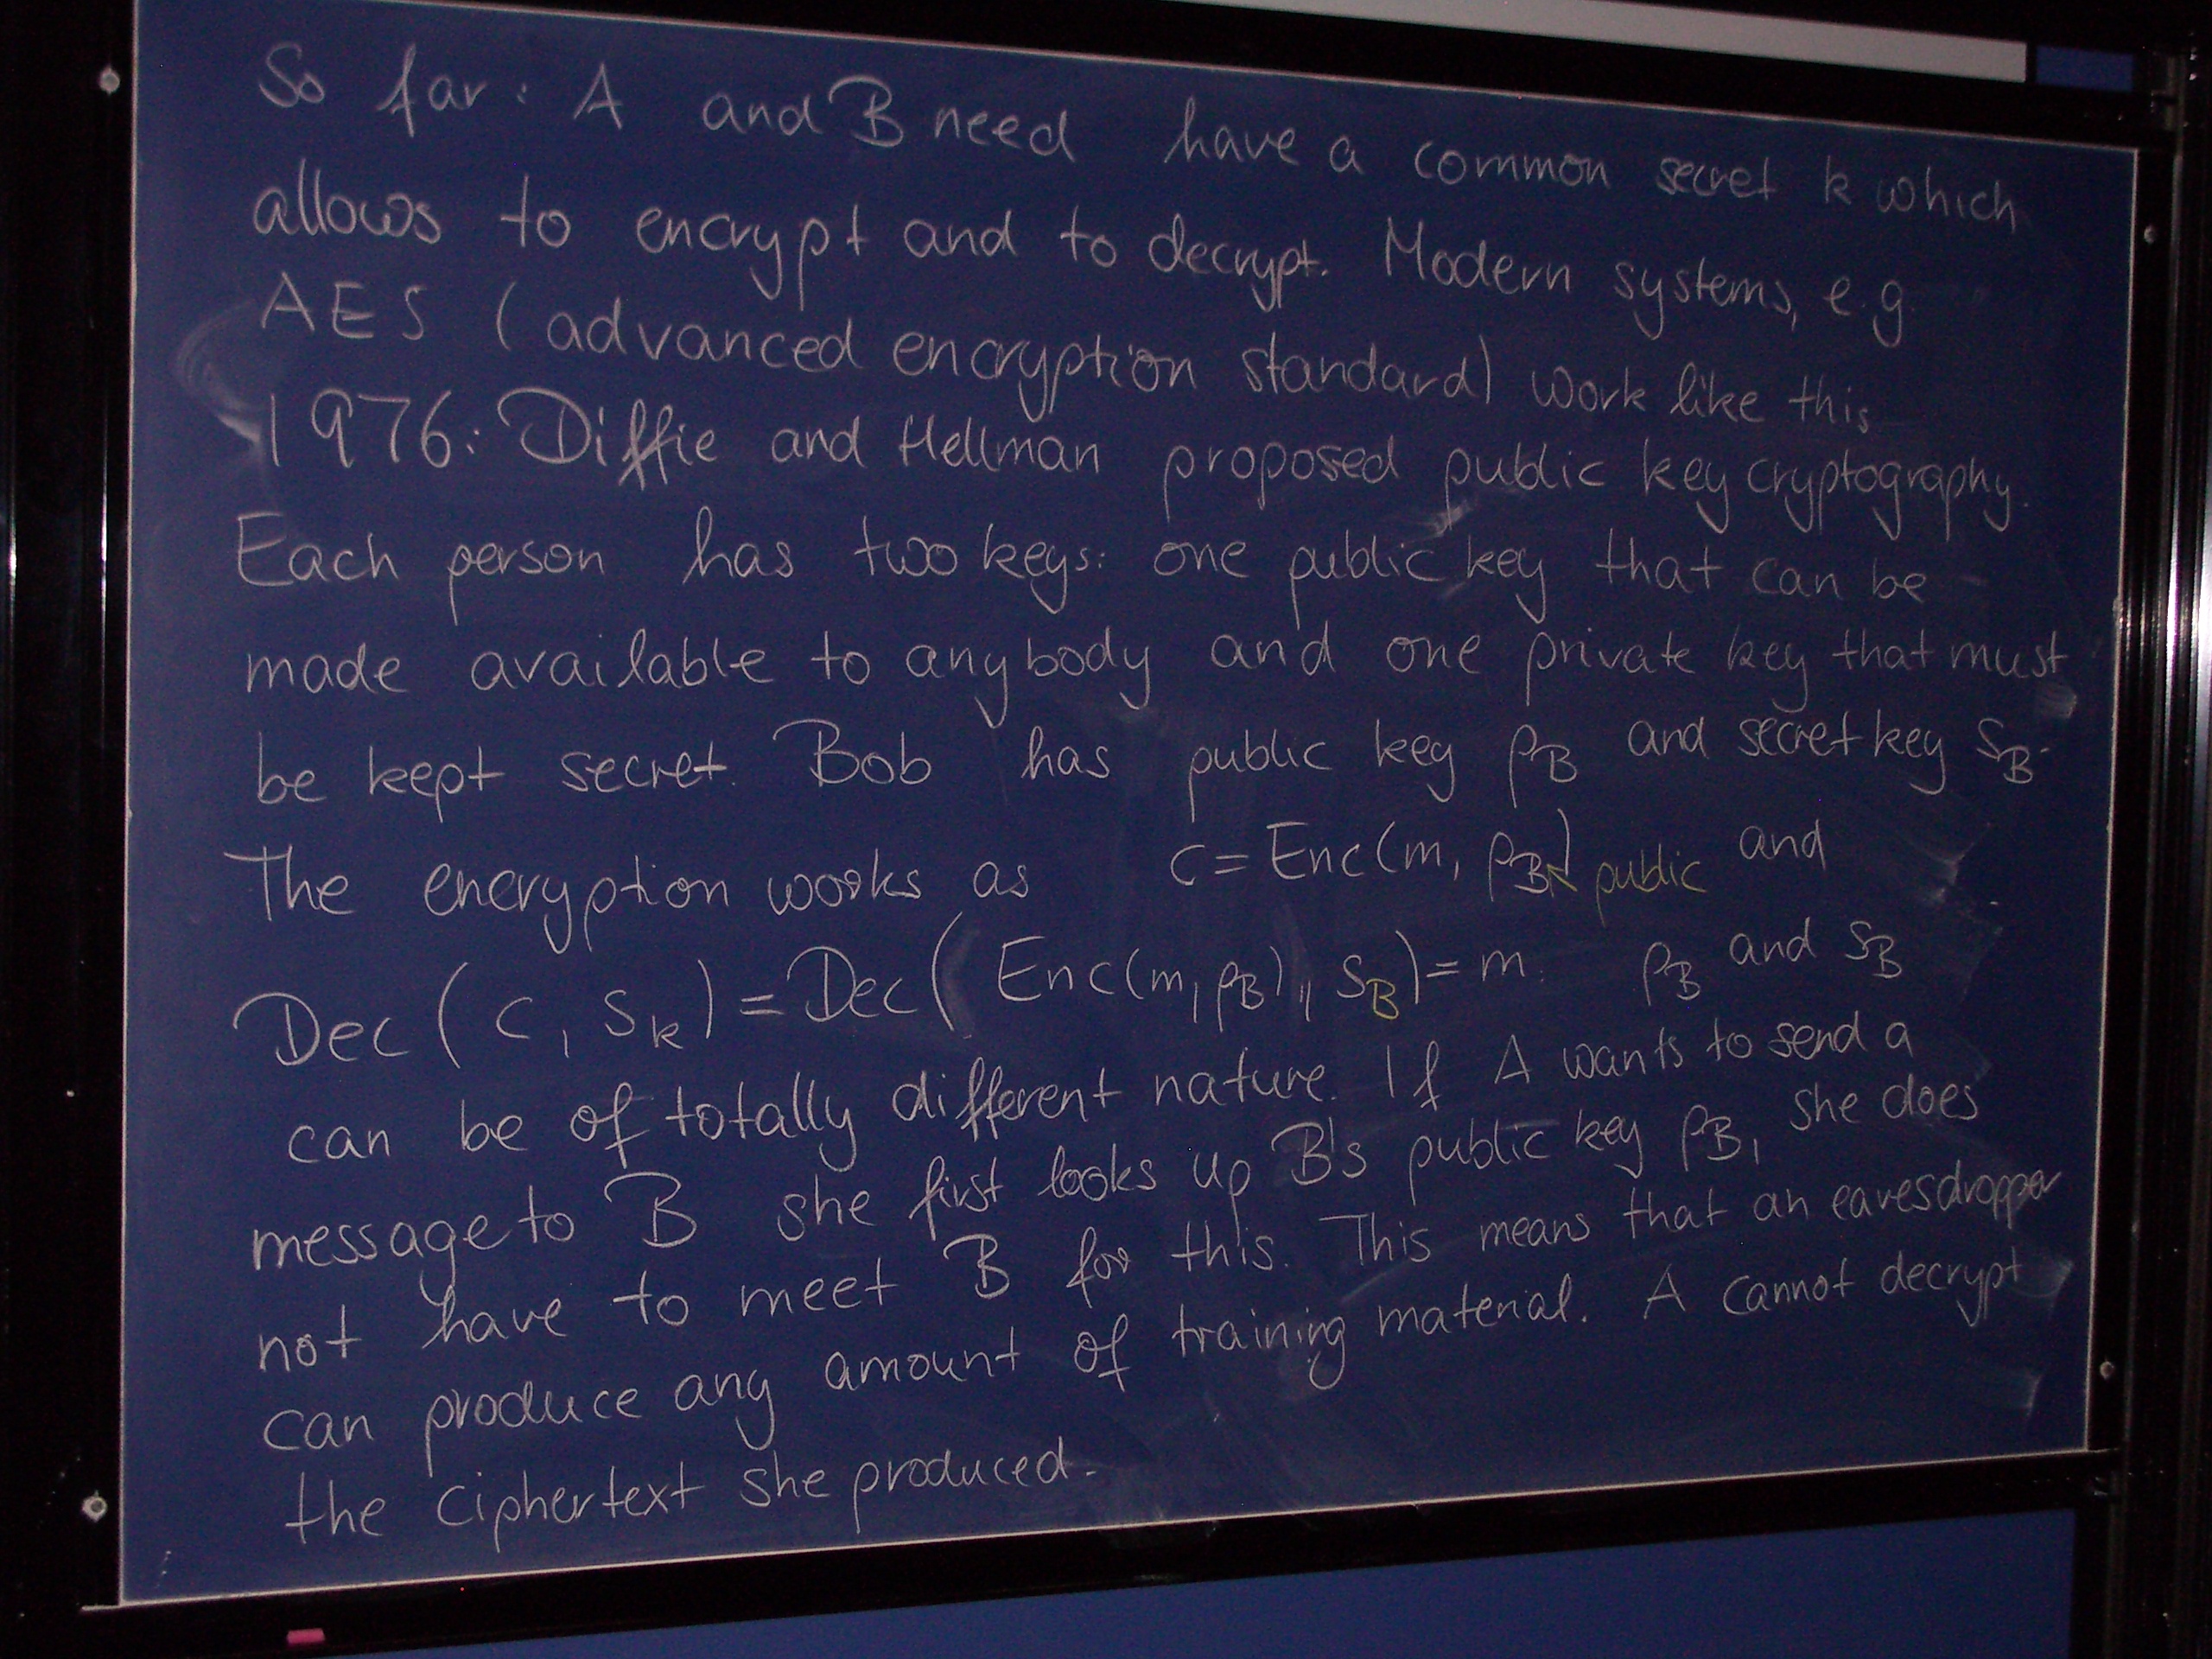 So far: A and B need have a common secret k which
allows to encrypt and to decrypt. Modern systems, e.g
AES (advanced encryption standard) work like this.
1976: Diffie and Hellman proposed public key cryptography.
Each person has two keys: one public key that can be
made available to anybody and one private key that must
be kept secret. Bob has public key p_B and secret key s_B.
The encryption works as c = Enc(m, p_B) public and
Dec(c, s_k) = Dec(Enc(m, p_B), s_B) = m. p_B and s_B
can be of totally different nature. If A wants to send a
message to B she first looks up B's public key p_B, she does
not have to meet B for this. This means that an eavesdropper
can produce any amount of training material. A cannot decrypt
the ciphertext she produced.